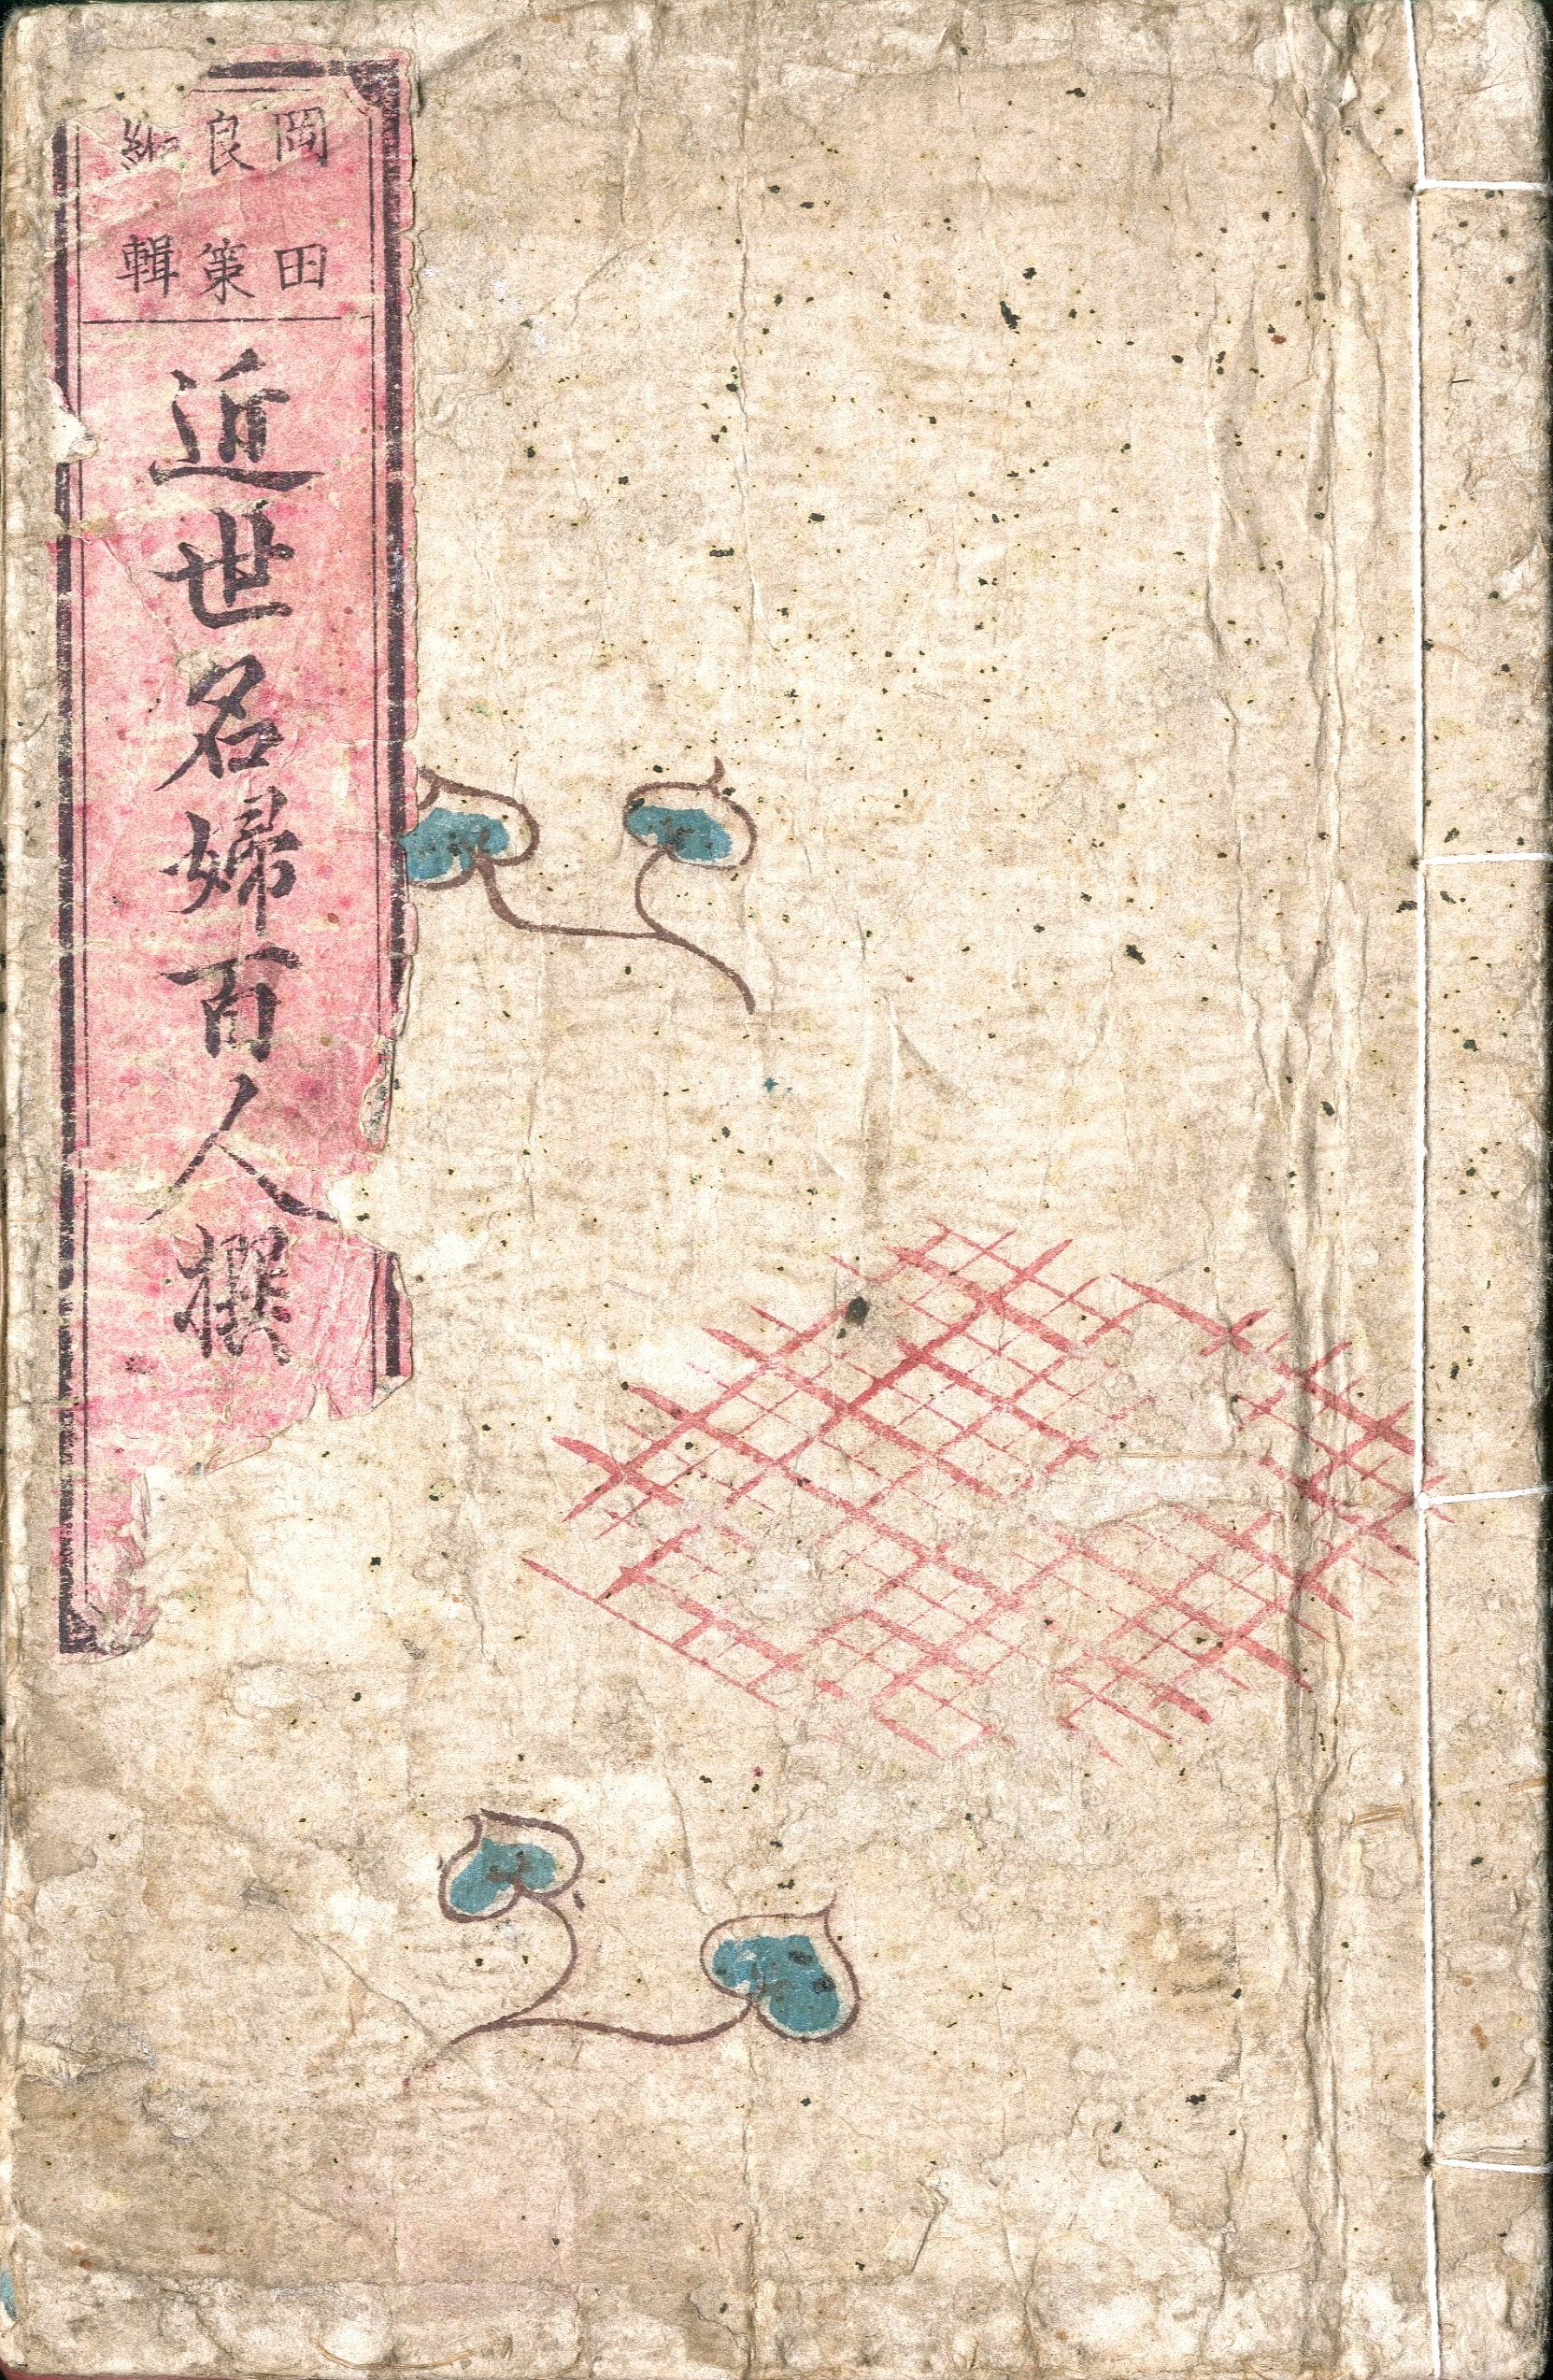 岡田
良策
編輯
近世名婦百人撰